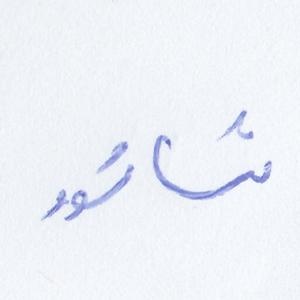 شاشور